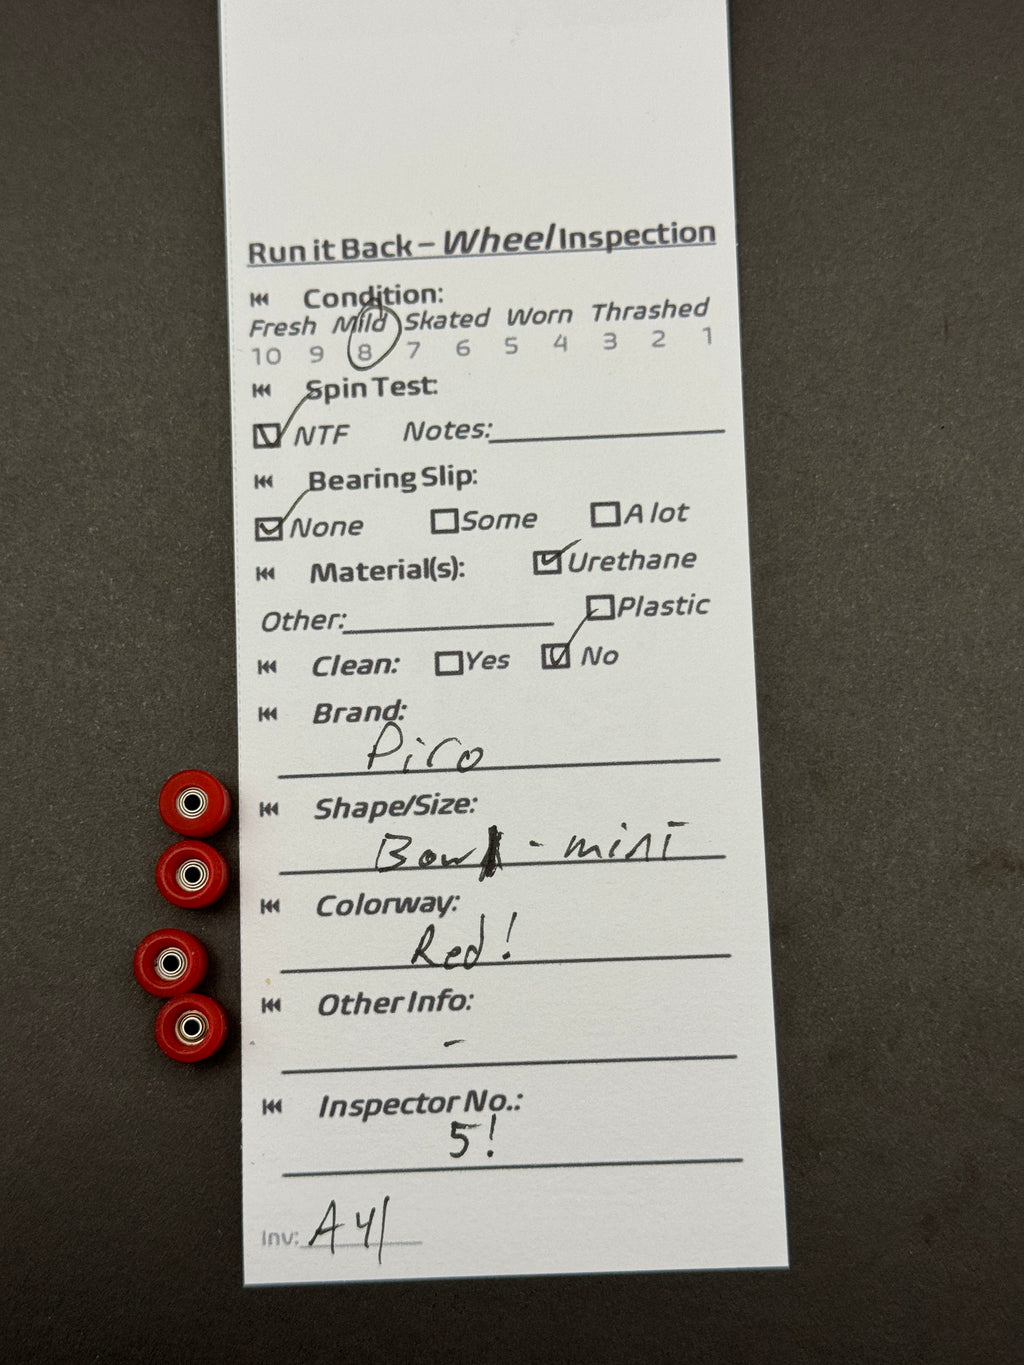 Run it Back – Wheel Inspection
Condition:
Fresh Mild Skated Worn Thrashed
10 9 8 7 6 5 4 3 2 1
Spin Test:
NTF Notes:
Bearing Slip:
None Some A lot
Material(s): Urethane
Other: Plastic
Clean: Yes No
Brand:
Piro
Shape/Size:
Bowl - mini
Colorway:
Red!
Other Info:
-
Inspector No.:
5!
Inv: A41